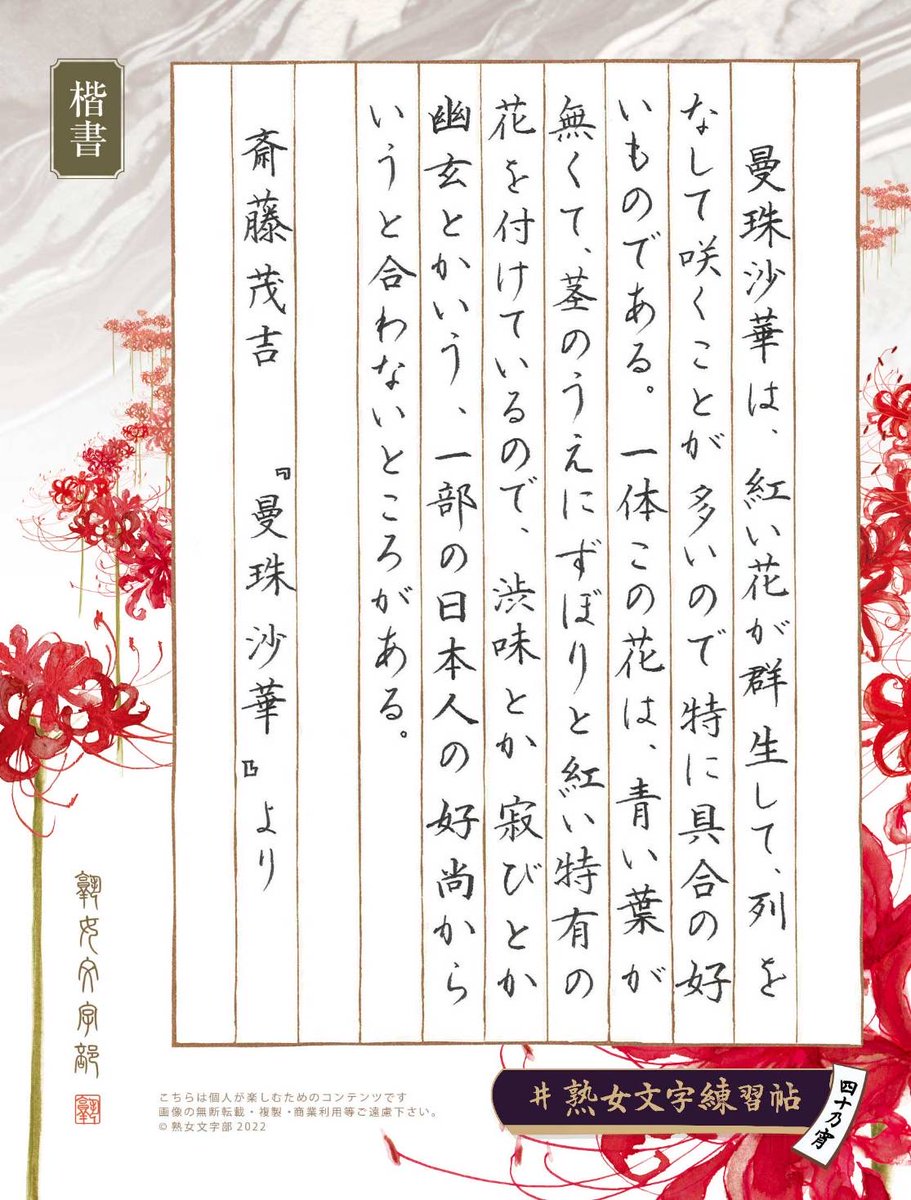 楷書
曼珠沙華は、紅い花が群生して、列を
なして咲くことが多いので特に具合の好
いものである。一体この花は、青い葉が
無くて、茎のうえにずぼりと紅い特有の
花を付けているので、渋味とか寂びとか
幽玄とかいう、一部の日本人の好尚から
いうと合わないところがある。
斎藤茂吉 『曼珠沙華』より
熟女文字部
こちらは個人が楽しむためのコンテンツです
画像の無断転載・複製・商業利用等ご遠慮下さい。
© 熟女文字部 2022
#熟女文字練習帖
四十乃宵